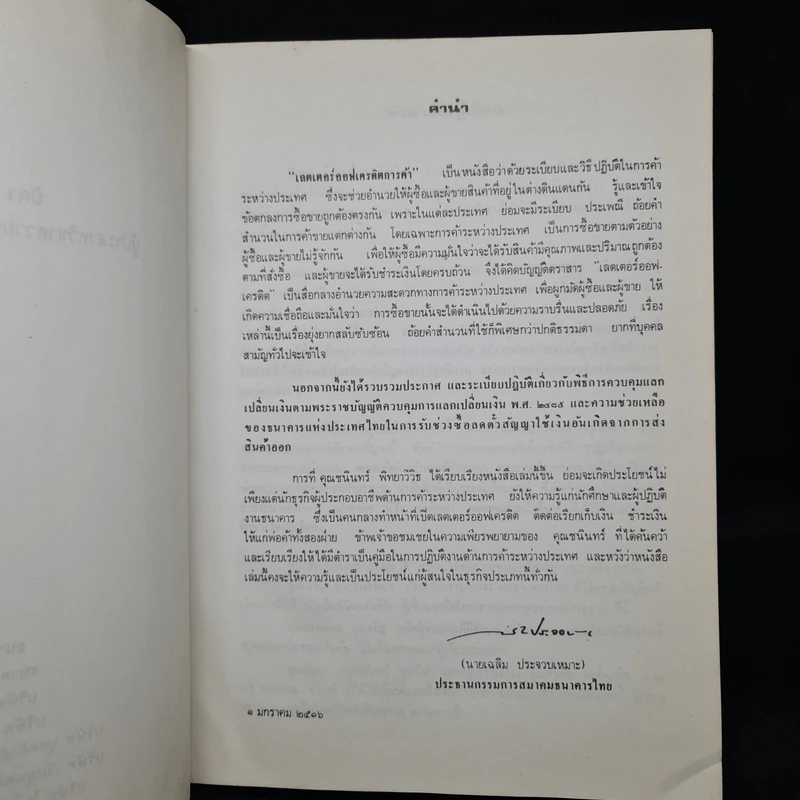 คำนำ
"เลตเตอร์ออฟเครดิตการค้า" เป็นหนังสือว่าด้วยระเบียบและวิธีปฏิบัติในการค้า
ระหว่างประเทศ ซึ่งจะช่วยอำนวยให้ผู้ซื้อและผู้ขายสินค้าที่อยู่ในต่างดินแดนกัน รู้และเข้าใจ
ข้อตกลงการซื้อขายถูกต้องตรงกัน เพราะในแต่ละประเทศ ย่อมจะมีระเบียบ ประเพณี ถ้อยคำ
สำนวนในการค้าขายแตกต่างกัน โดยเฉพาะการค้าระหว่างประเทศ เป็นการซื้อขายตามตัวอย่าง
ผู้ซื้อและผู้ขายไม่รู้จักกัน เพื่อให้ผู้ซื้อมีความมั่นใจว่าจะได้รับสินค้ามีคุณภาพและปริมาณถูกต้อง
ตามที่สั่งซื้อ และผู้ขายจะได้รับชำระเงินโดยครบถ้วน จึงได้คิดบัญญัติตราสาร "เลตเตอร์ออฟ-
เครดิต" เป็นสื่อกลางอำนวยความสะดวกทางการค้าระหว่างประเทศ เพื่อผูกมัดผู้ซื้อและผู้ขาย ให้
เกิดความเชื่อถือและมั่นใจว่า การซื้อขายนั้นจะได้ดำเนินไปด้วยความราบรื่นและปลอดภัย เรื่อง
เหล่านี้เป็นเรื่องยุ่งยากสลับซับซ้อน ถ้อยคำสำนวนที่ใช้ก็พิเศษกว่าปกติธรรมดา ยากที่บุคคล
สามัญทั่วไปจะเข้าใจ
นอกจากนี้ยังได้รวบรวมประกาศ และระเบียบปฏิบัติเกี่ยวกับพิธีการควบคุมแลก
เปลี่ยนเงินตามพระราชบัญญัติควบคุมการแลกเปลี่ยนเงิน พ.ศ. ๒๔๘๕ และความช่วยเหลือ
ของธนาคารแห่งประเทศไทยในการรับช่วงซื้อลดตั๋วสัญญาใช้เงินอันเกิดจากการส่ง
สินค้าออก
การที่ คุณชนินทร์ พิทยาวิวิธ ได้เรียบเรียงหนังสือเล่มนี้ขึ้น ย่อมจะเกิดประโยชน์ไม่
เพียงแต่นักธุรกิจผู้ประกอบอาชีพด้านการค้าระหว่างประเทศ ยังให้ความรู้แก่นักศึกษาและผู้ปฏิบัติ
งานธนาคาร ซึ่งเป็นคนกลางทำหน้าที่เปิดเลตเตอร์ออฟเครดิต ติดต่อเรียกเก็บเงิน ชำระเงิน
ให้แก่พ่อค้าทั้งสองฝ่าย ข้าพเจ้าขอชมเชยในความเพียรพยายามของ คุณชนินทร์ ที่ได้ค้นคว้า
และเรียบเรียงให้ได้มีตำราเป็นคู่มือในการปฏิบัติงานด้านการค้าระหว่างประเทศ และหวังว่าหนังสือ
เล่มนี้คงจะให้ความรู้และเป็นประโยชน์แก่ผู้สนใจในธุรกิจประเภทนี้ทั่วกัน
(นายเฉลิม ประจวบเหมาะ)
ประธานกรรมการสมาคมธนาคารไทย
๑ มกราคม ๒๕๑๖